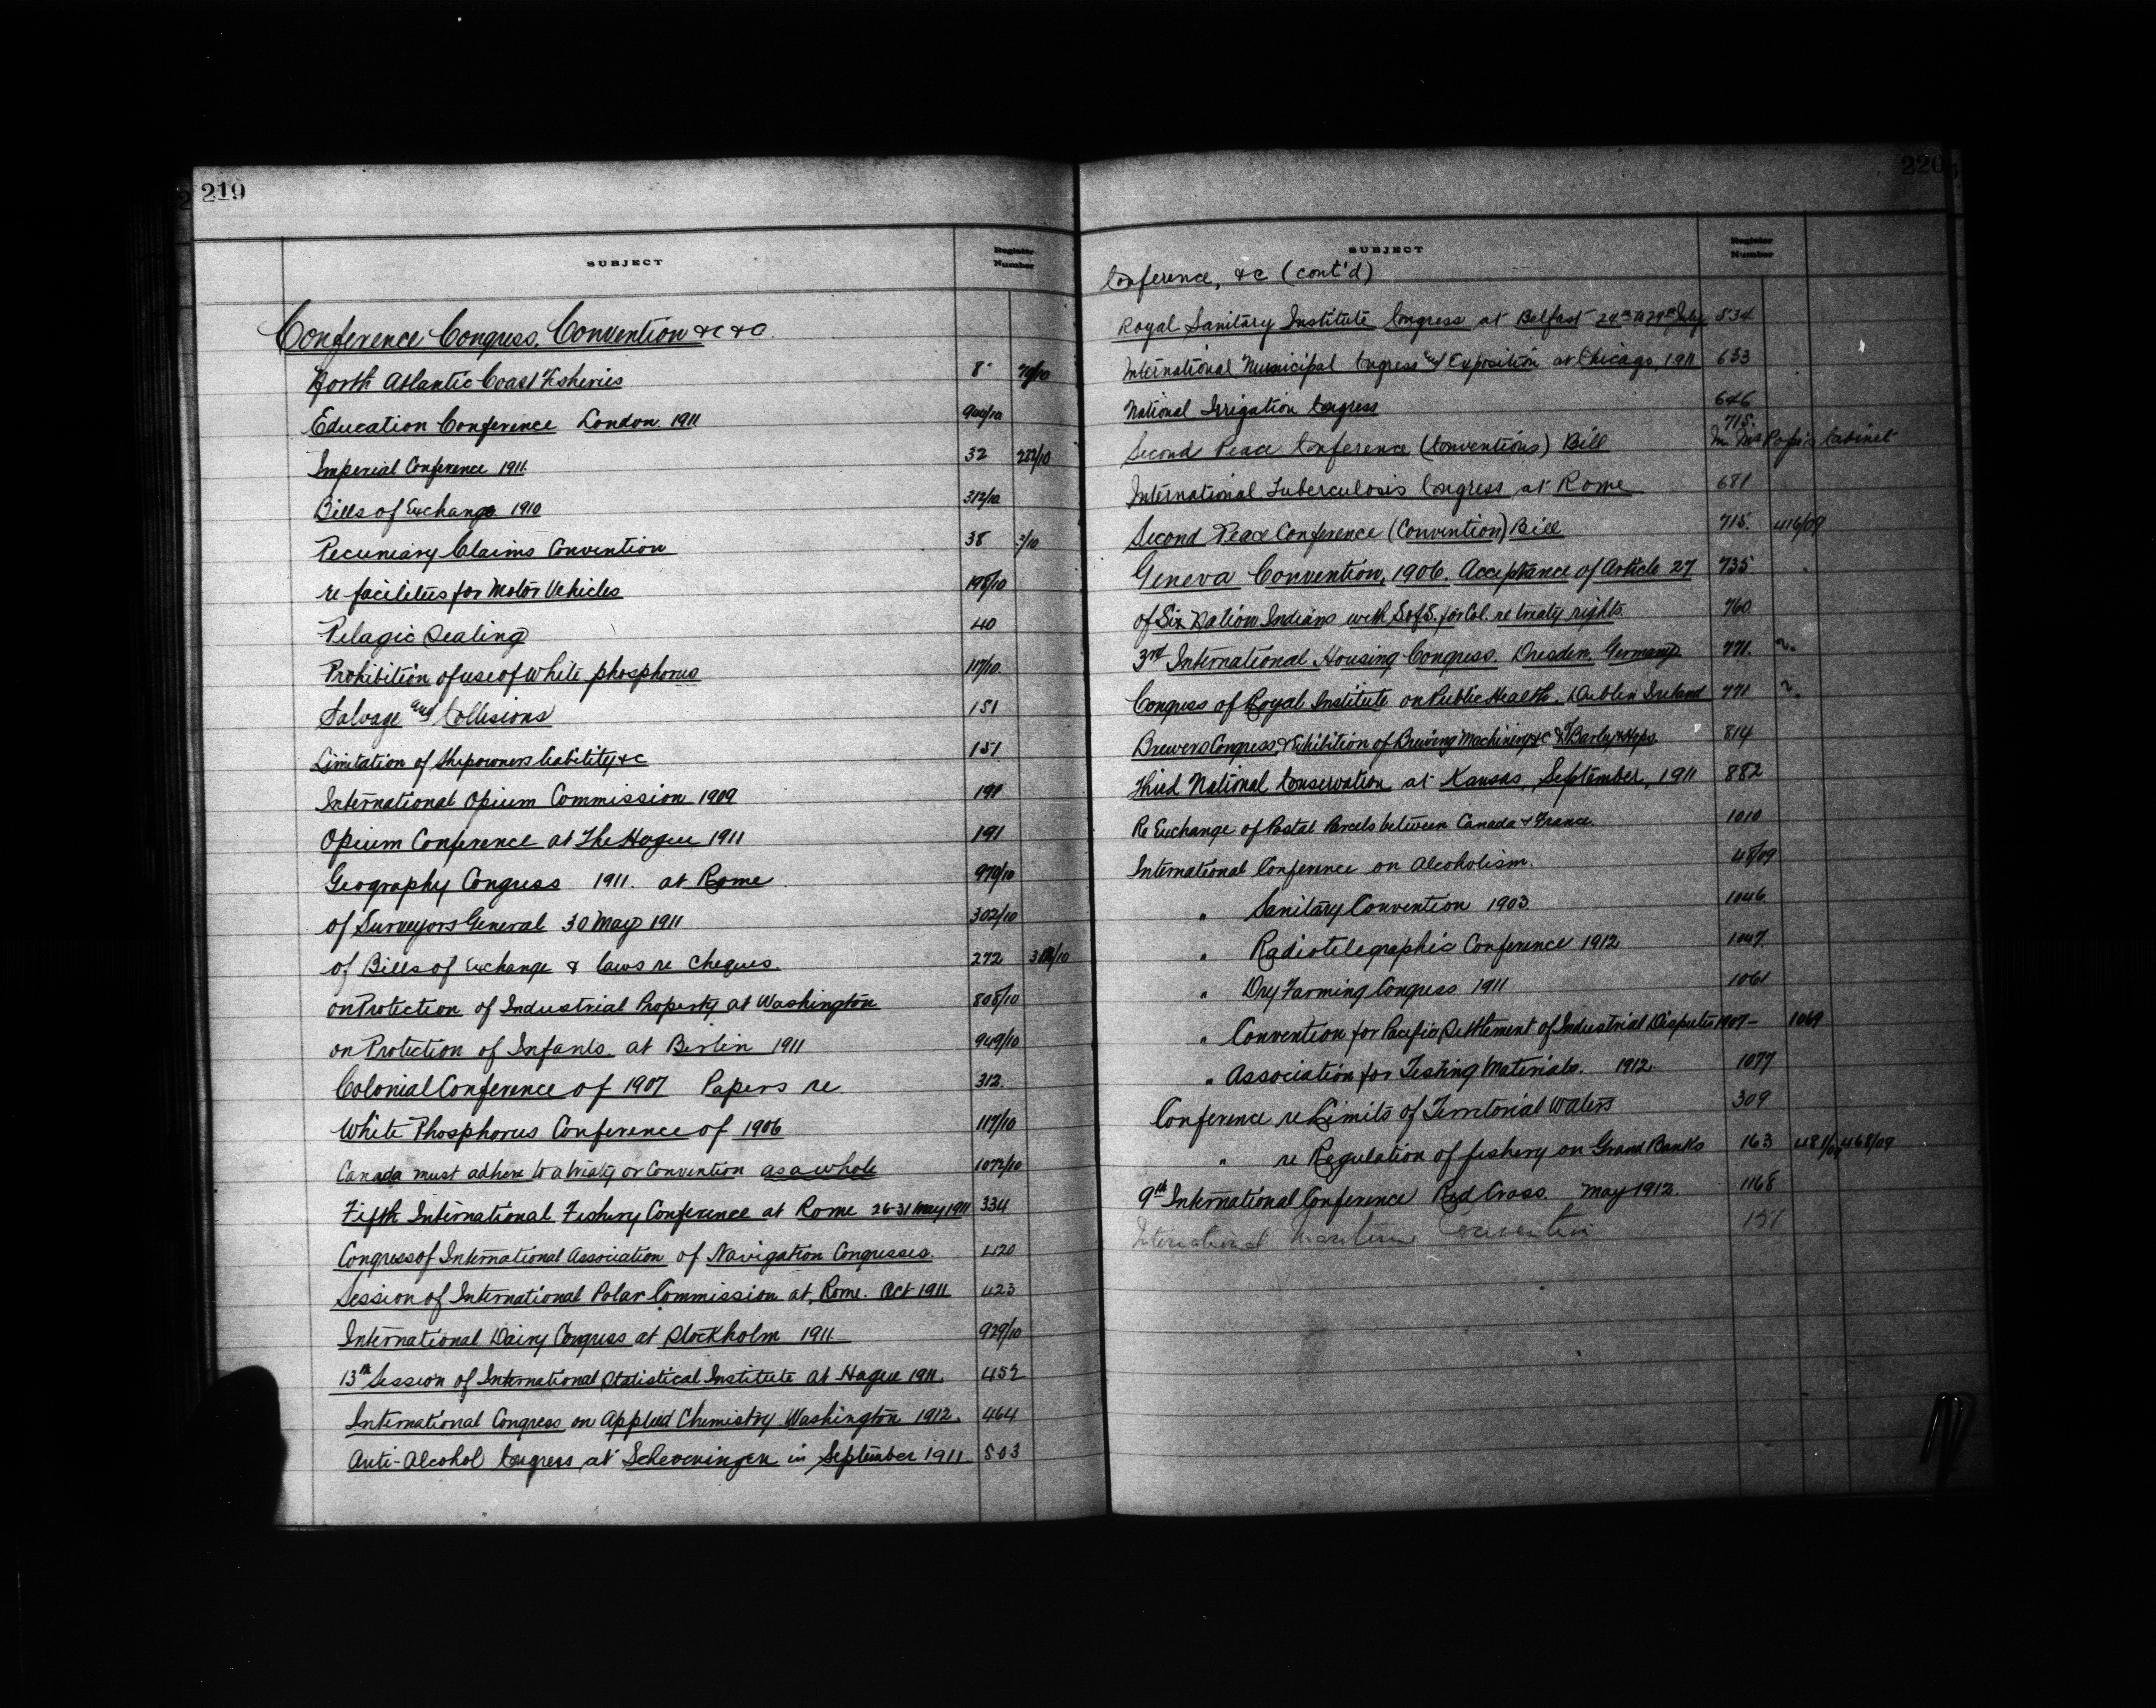 219
SUBJECT Register Number
Conference Congress, Convention &c &c
North Atlantic Coast Fisheries 8
Education Conference London 1911 944/10
Imperial Conference 1911. 32 282/10
Bills of Exchange 1910 312/10
Pecuniary Claims Convention 38 3/10
re facilities for Motor Vehicles 198/10
Pelagic Sealing 40
Prohibition of use of White phosphorus 117/10.
Salvage and Collisions 151
Limitation of Shipowners liability &c 151
International Opium Commission 1909 191
Opium Conference at The Hague 1911 191
Geography Congress 1911. at Rome 970/10
of Surveyors General 30 May 1911 302/10
of Bills of Exchange & laws re Cheques. 272 312/10
on Protection of Industrial Property at Washington 808/10
on Protection of Infants at Berlin 1911 949/10
Colonial Conference of 1907 Papers re 312.
White Phosphorus Conference of 1906 117/10
Canada must adhere to a treaty or Convention as a whole 1072/10
Fifth International Fishery Conference at Rome 26-31 May 1911 334
Congress of International Association of Navigation Congresses. 420
Session of International Polar Commission at Rome. Oct 1911 423
International Dairy Congress at Stockholm 1911 929/10
13th Session of International Statistical Institute at Hague 1911. 452
International Congress on Applied Chemistry Washington 1912. 464
Anti-Alcohol Congress at Scheveningen in September 1911 503
220
SUBJECT Register Number
Conference, &c (cont'd)
Royal Sanitary Institute Congress at Belfast 24th to 29th July 534
International Municipal Congress and Exposition at Chicago, 1911 633
National Irrigation Congress 646
715.
Second Peace Conference (Conventions) Bill In Mr Pope's Cabinet
International Tuberculosis Congress at Rome 681
Second Peace Conference (Convention) Bill 715. 416/09
Geneva Convention, 1906. Acceptance of Article 27 735
of Six Nation Indians with S of S. for Col. re treaty rights. 760
3rd International Housing Congress. Dresden. Germany 771. 2.
Congress of Royal Institute on Public Health. Dublin Ireland 771 2.
Brewers Congress, & Exhibition of Brewing Machinery &c & of Barley & Hops. 814
Third National Conservation at Kansas, September, 1911 882
Re Exchange of Postal Parcels between Canada & France. 1010
International Conference on Alcoholism. 48/09
" Sanitary Convention 1903. 1046
" Radiotelegraphic Conference 1912 1047.
" Dry Farming Congress 1911 1061
" Convention for Pacific Settlement of Industrial Disputes 1907 - 1069
" Association for Testing Materials. 1912. 1077
Conference re Limits of Territorial Waters 309
" re Regulation of fishery on Grand Banks 163 468/09
9th International Conference Red Cross. May 1912. 1168
International Maritime Convention 151